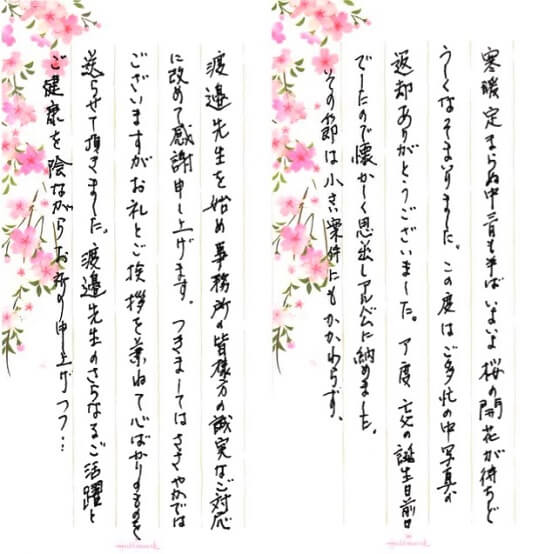 寒暖定まらぬ中三月も半ばいよいよ桜の開花が待ちど
うしくなってまいりました。この度はご多忙の中写真の
返却ありがとうございました。丁度亡父の誕生日前日
でしたので懐かしく思出しアルバムに納めました。
その節は小さい案件にもかかわらず、
渡邉先生を始め事務所の皆様方の誠実なご対応
に改めて感謝申し上げます。つきましてはささやかでは
ございますがお礼とご挨拶を兼ねて心ばかりのものを
送らせて頂きました。渡邉先生のさらなるご活躍と
ご健康を陰ながらお祈り申し上げつつ…
Hallmark
Hallmark